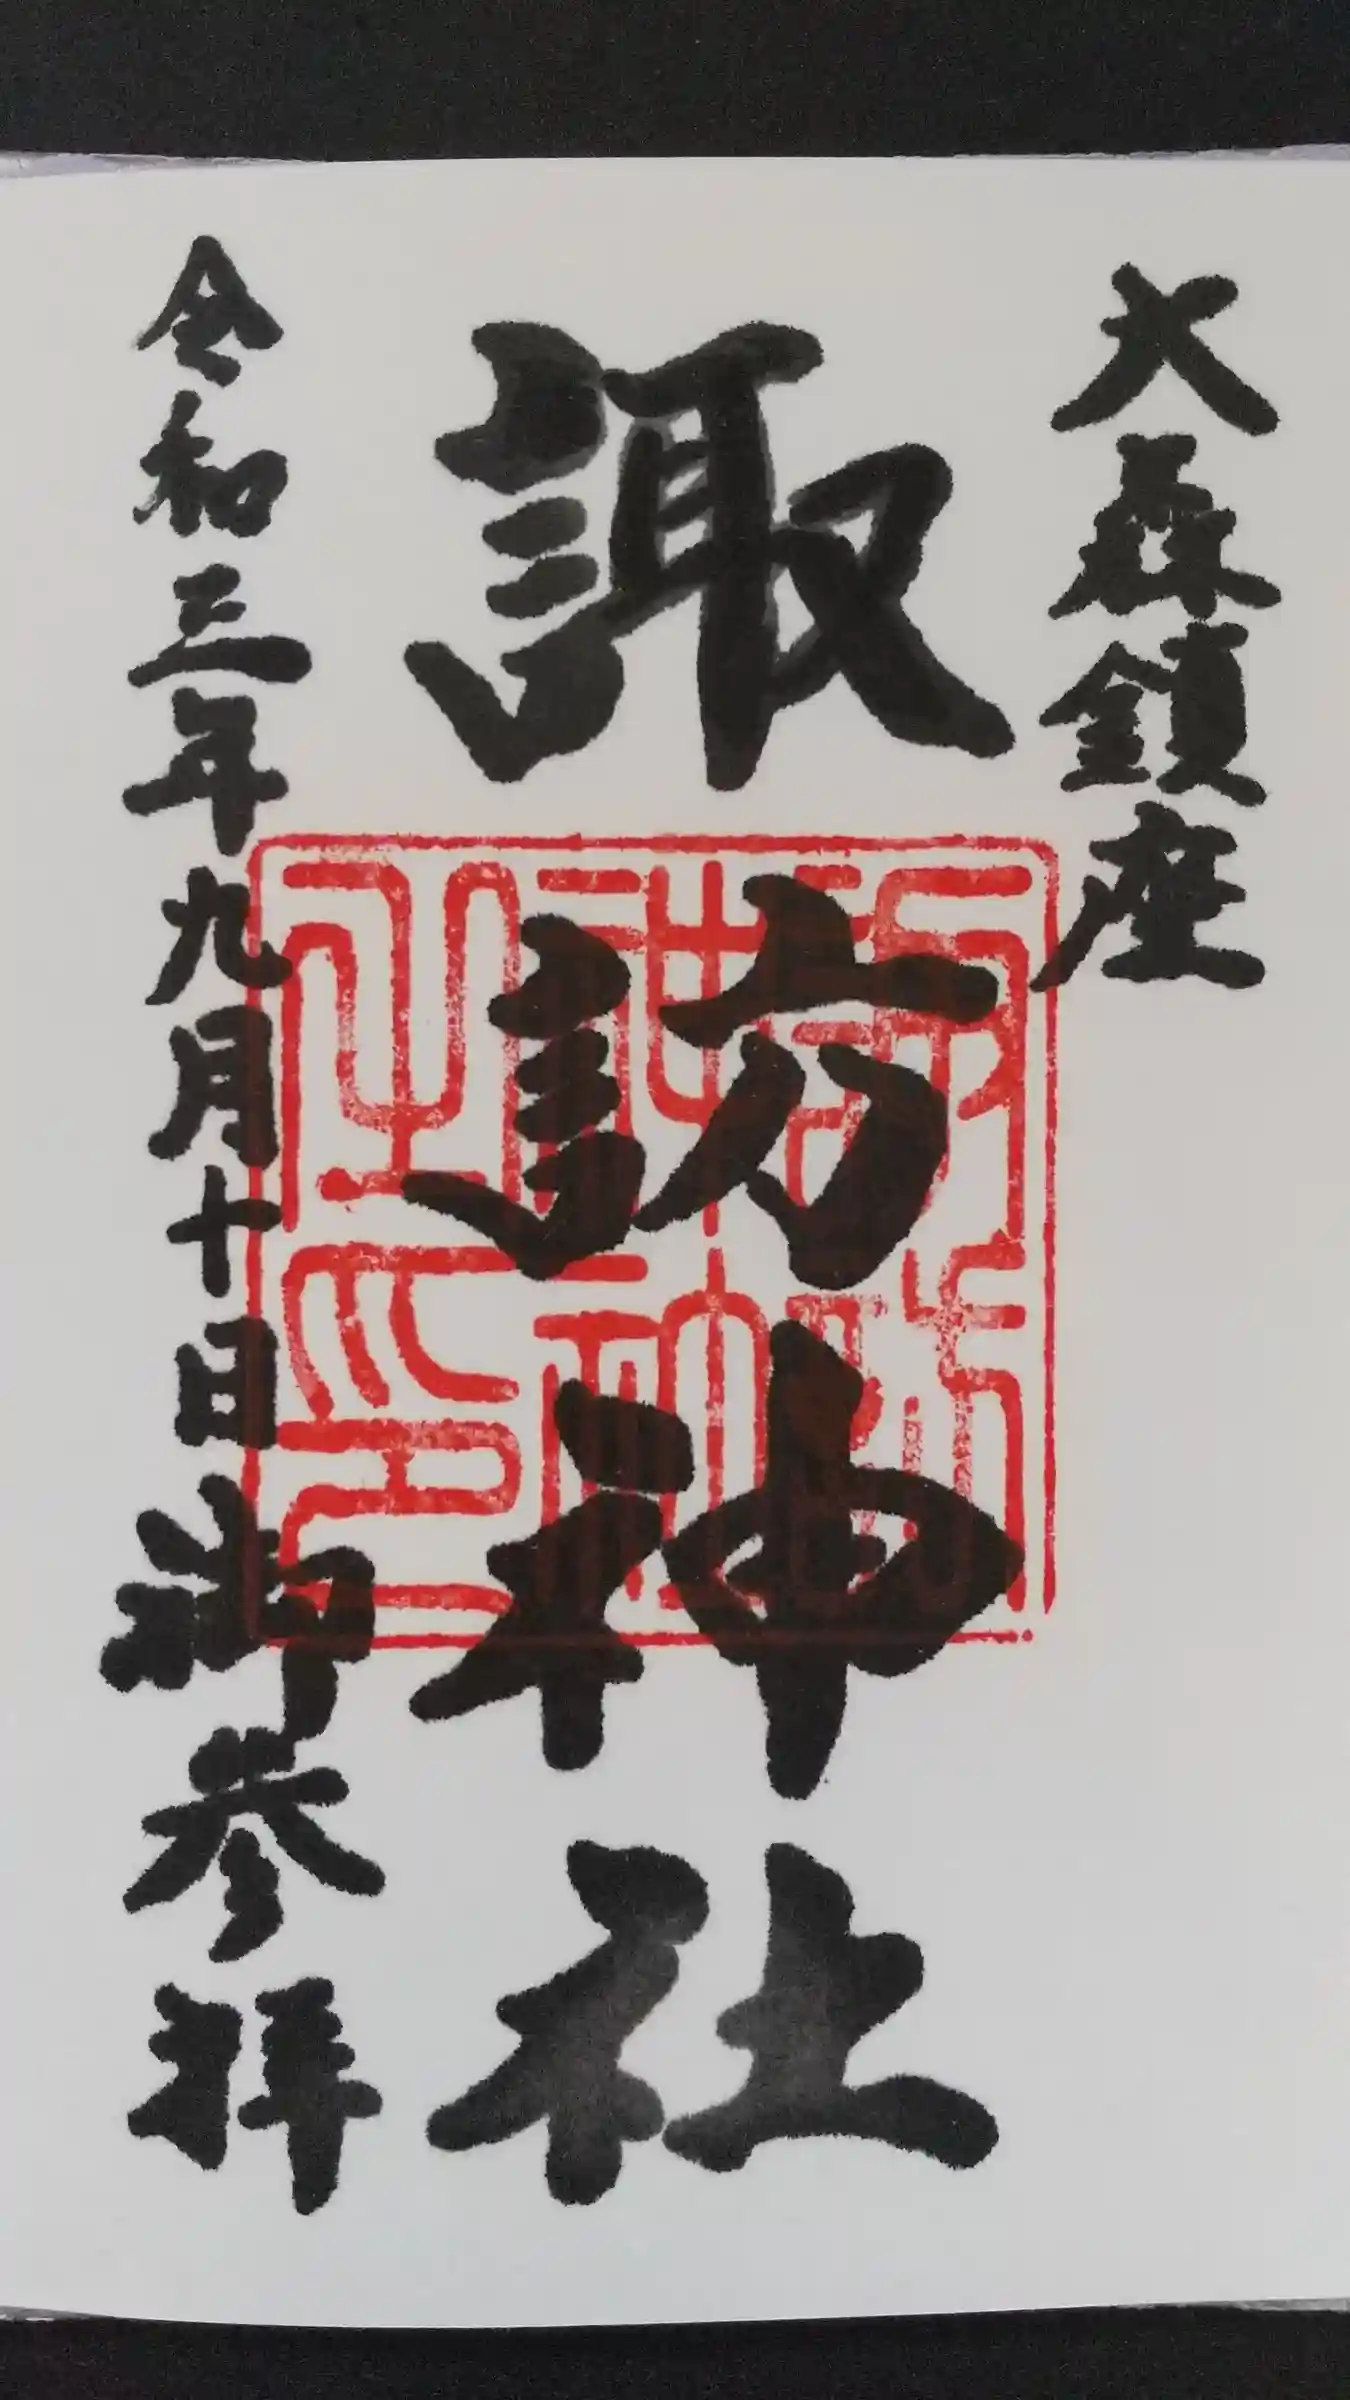 大森鎮座
諏訪神社
令和三年九月十日御参拝